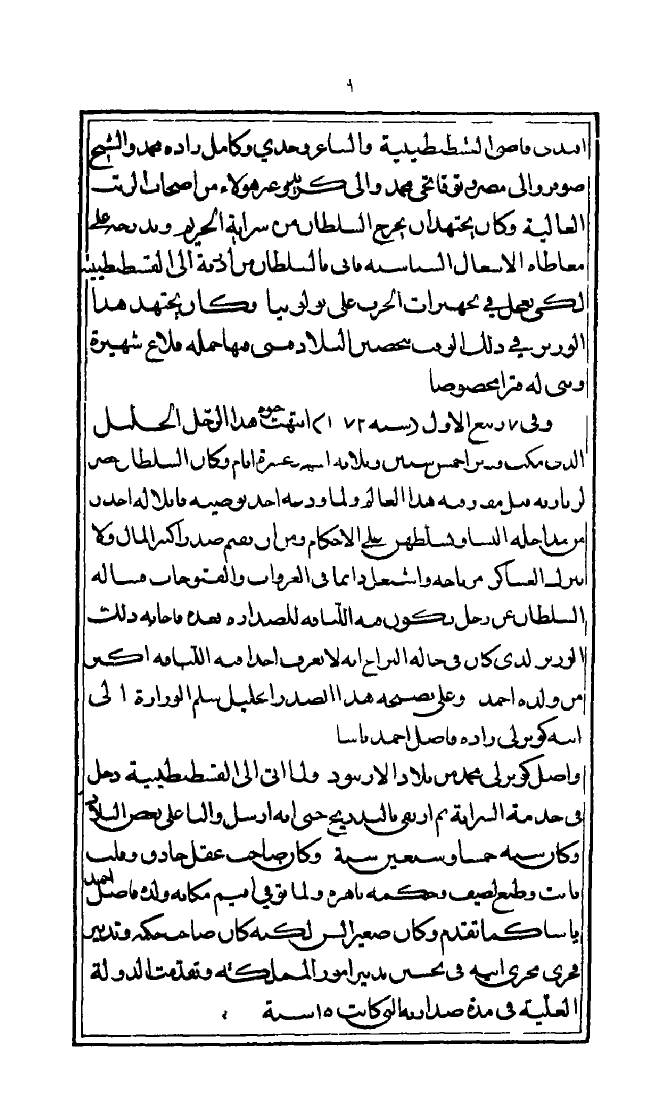 ٩
افندى قاضى القسطنطينية والشاعر وحدي وكامل زاده محمد والشيخ
والى مصر محمد والى من اصحاب الرتب
العالية وكان يجتهد ان يخرج السلطان من سراية الحريم على
معاطاه الاشغال السياسيه فاتى بالسلطان من أذمة الى القسطنطينية
لكى يعمل في تجهيزات الحرب على بولونيا وكان يجتهد هذا
الوزير في ذلك الوقت بتحصين البلاد قلاع شهيرة
وبنى له قبرا مخصوصا
وفى ٧ ربيع الاول (سنه ١٠٧٢) انتهت حيوة هذا الرجل الجليل
الذى مكث وزيرا خمس سنين وثلاثه عشرة ايام وكان السلطان حضر
لزيارته قبل هذا العالم ولما ودعه اخذ توصيه قايلا له احذر
من مداخله النساء وتسلطهن على الاحكام ومن ان صدر اكثر المال ولا
تترك العساكر مرتاحه واشتغل دايما فى الغزوات والفتوحات فساله
السلطان عن رجل يكون فيه اللياقه للصداره بعده فاجابه ذلك
الوزير الذى كان فى حاله النزاع انه لا يعرف احدا فيه اللياقه اكثر
من ولده احمد وعلى نصيحه هذا الصدر الجليل سلم الوزارة الى
ابنه كوبرلى زاده فاضل احمد باشا
واصل كوبرلى محمد من بلاد الارنبود ولما اتى الى القسطنطينية دخل
فى خدمة السراية ثم ارتقى بالتدريج حتى انه ارسل واليا على بعض البلاد
وكان سنه خمسا وسبعين سنة وكان صاحب عقل حاذق وقلب
ثابت وطبع لطيف وحكمه باهره ولما توفى اقيم مكانه ولده فاضل احمد
باشا كما تقدم وكان صغير السن لكنه كان صاحب حكمه وتدبير
فجرى مجرى ابيه فى تحسين تدبير امور المملكة وتقدمت الدولة
العلية فى مدة صدارته التى كانت ١٥ سنة